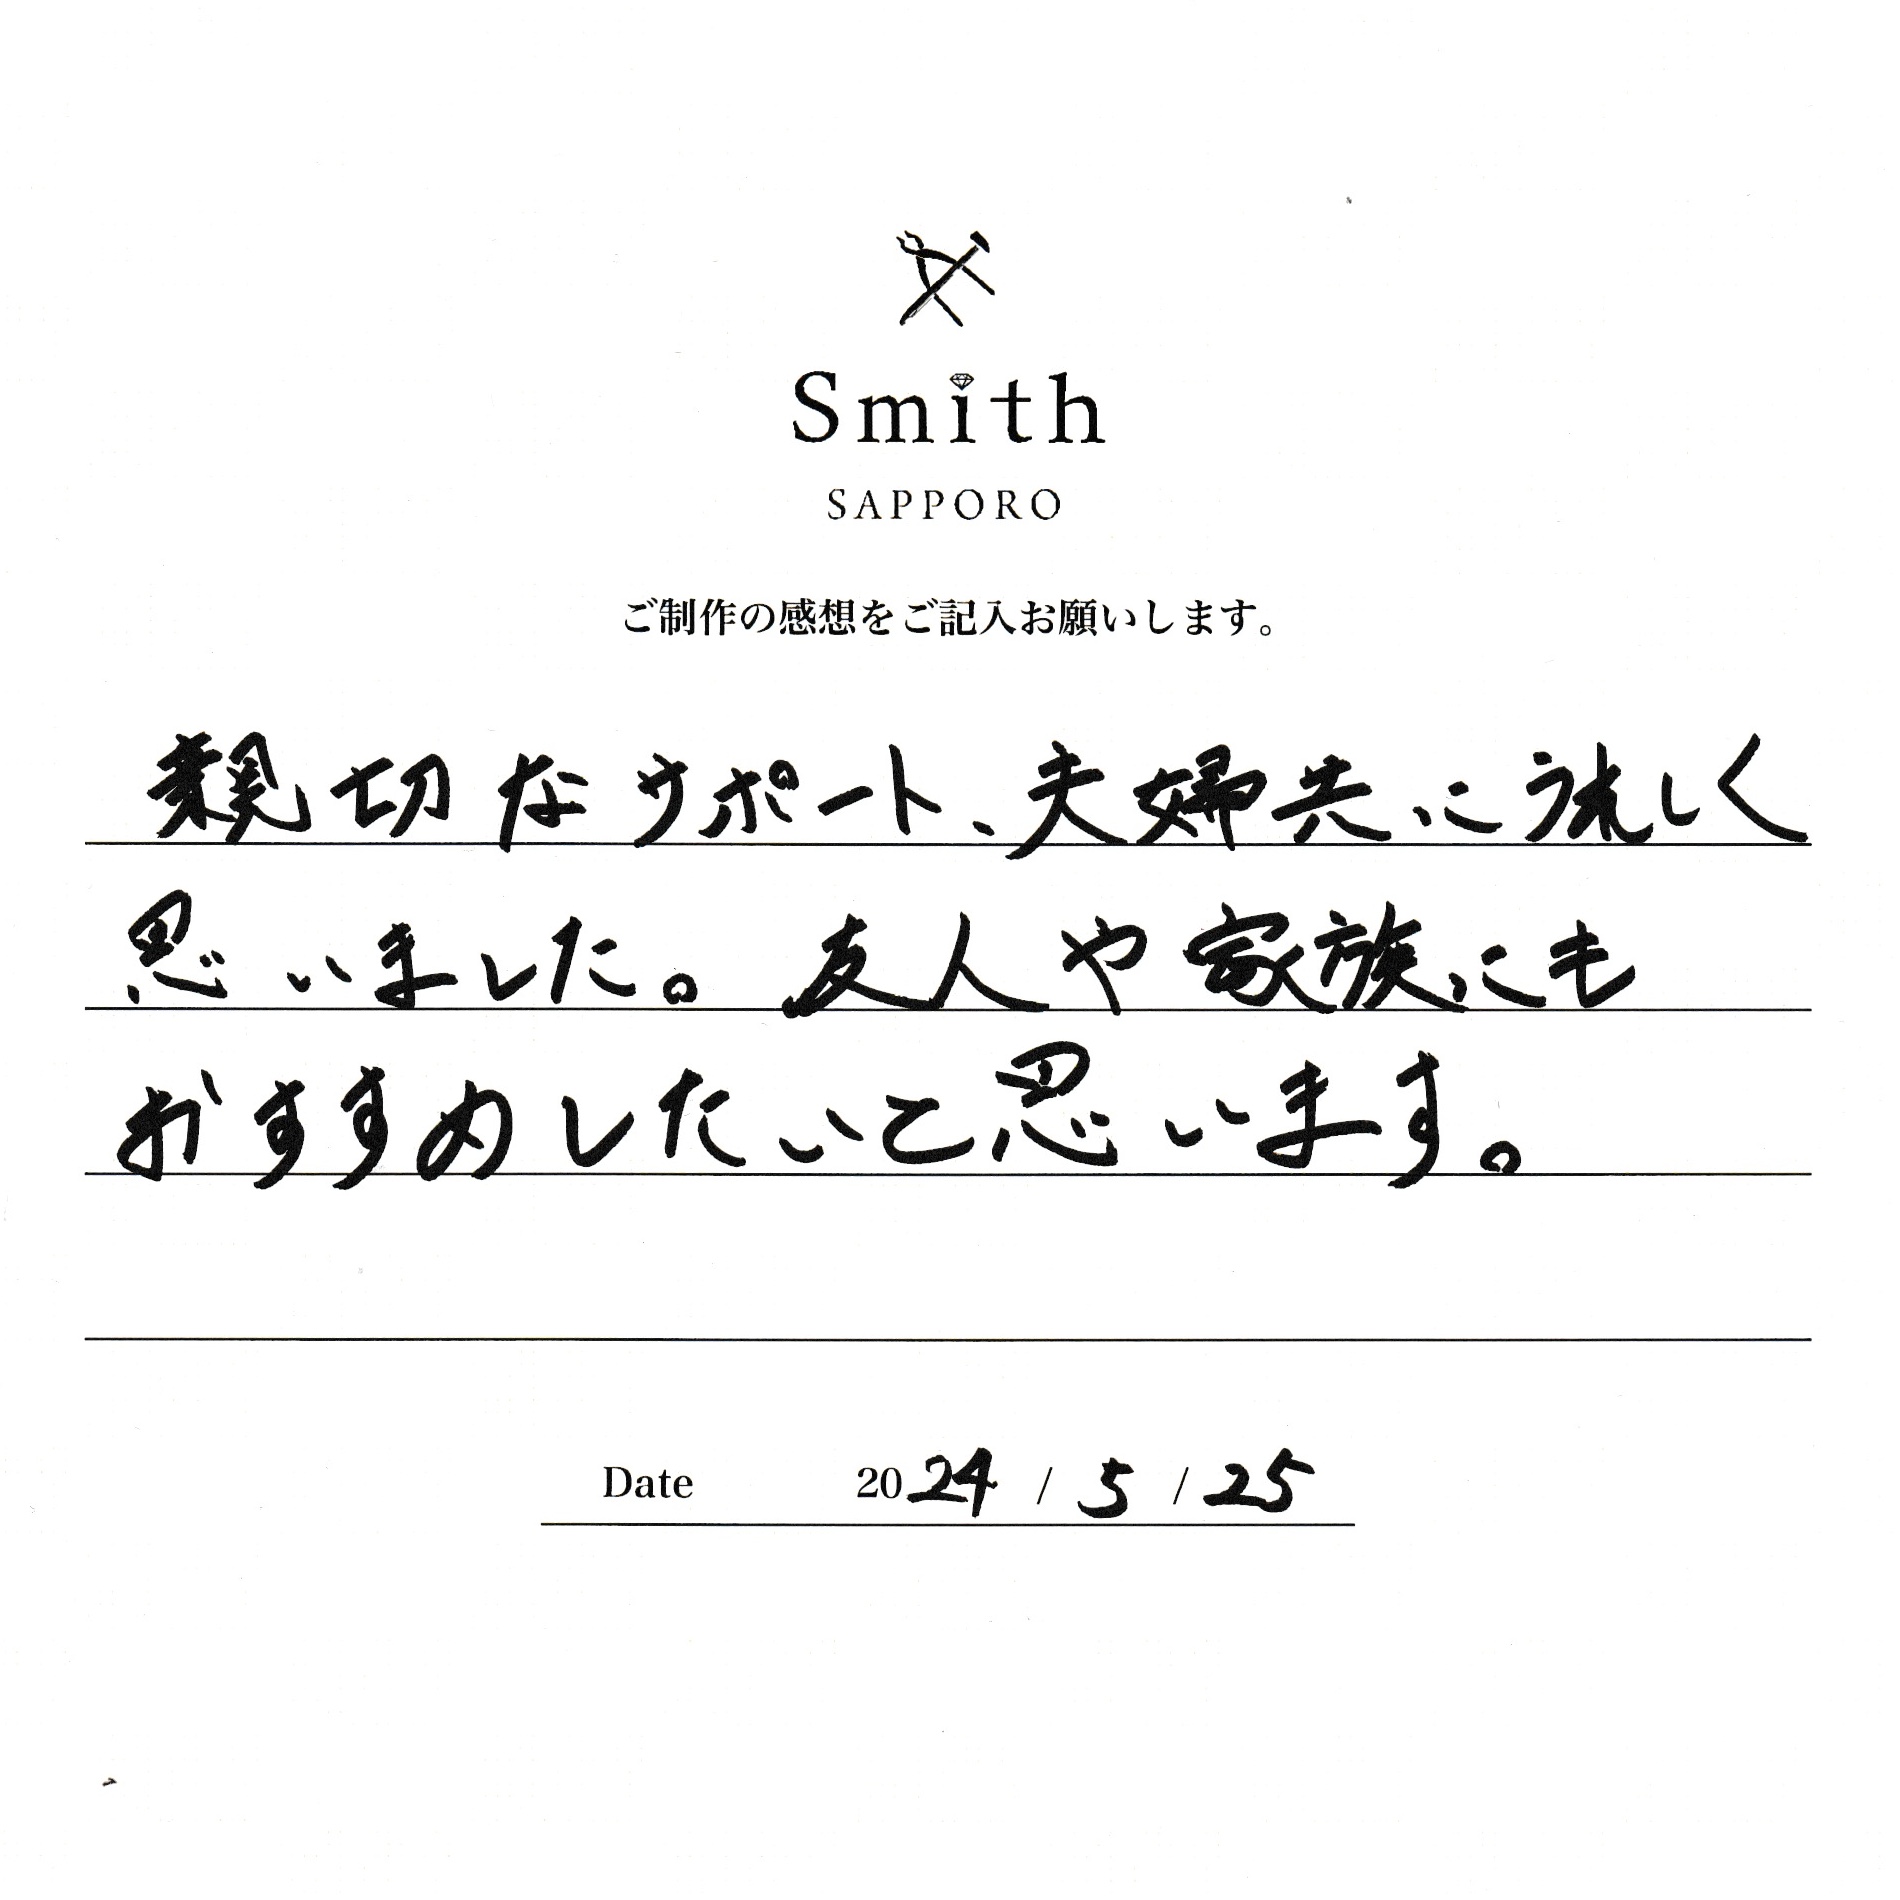 Smith
SAPPORO
ご制作の感想をご記入お願いします。
親切なサポート、夫婦共に嬉しく
思いました。友人や家族にも
おすすめしたいと思います。
Date 2024 / 5 / 25